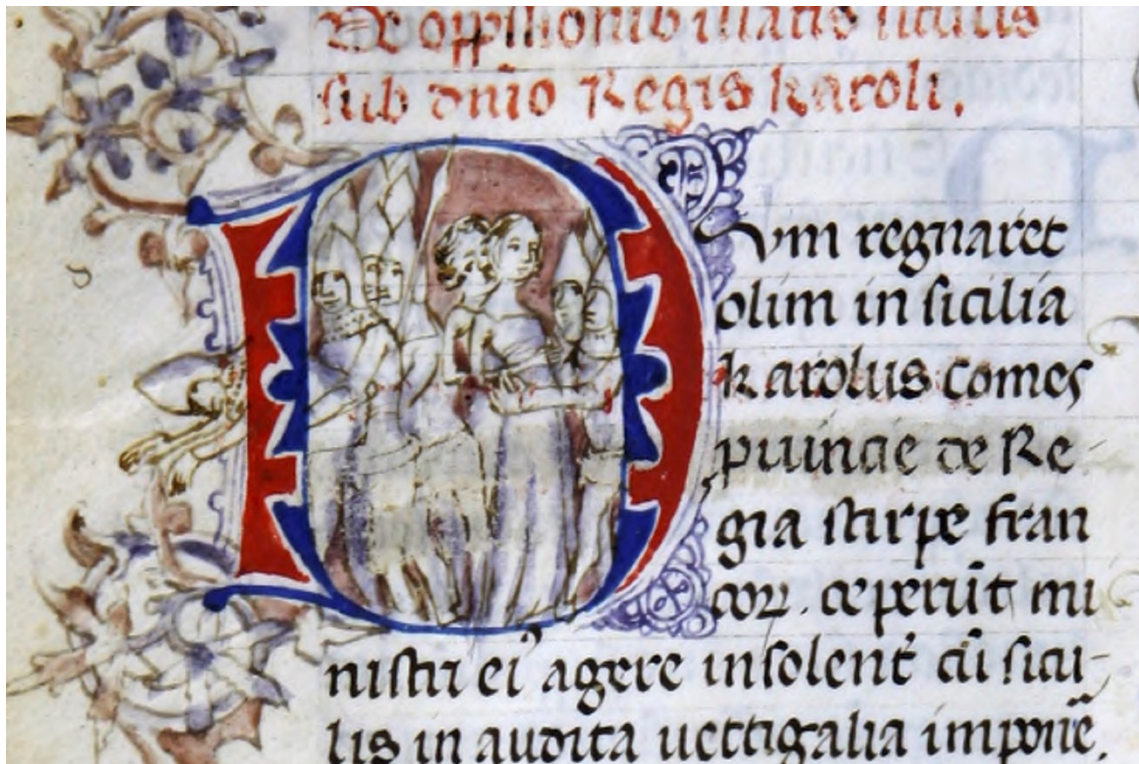 De opp̄ssionib illatis siculis
sub dn̄io Regis karoli.
Dvm regnaret
olim in sicilia
karolus comes
puincie de Re
gia stirpe fran
coꝝ. ceperūt mi
nistri ei᾽ agere insolent᾽ cū sicu-
lis in audita uectigalia imponē.